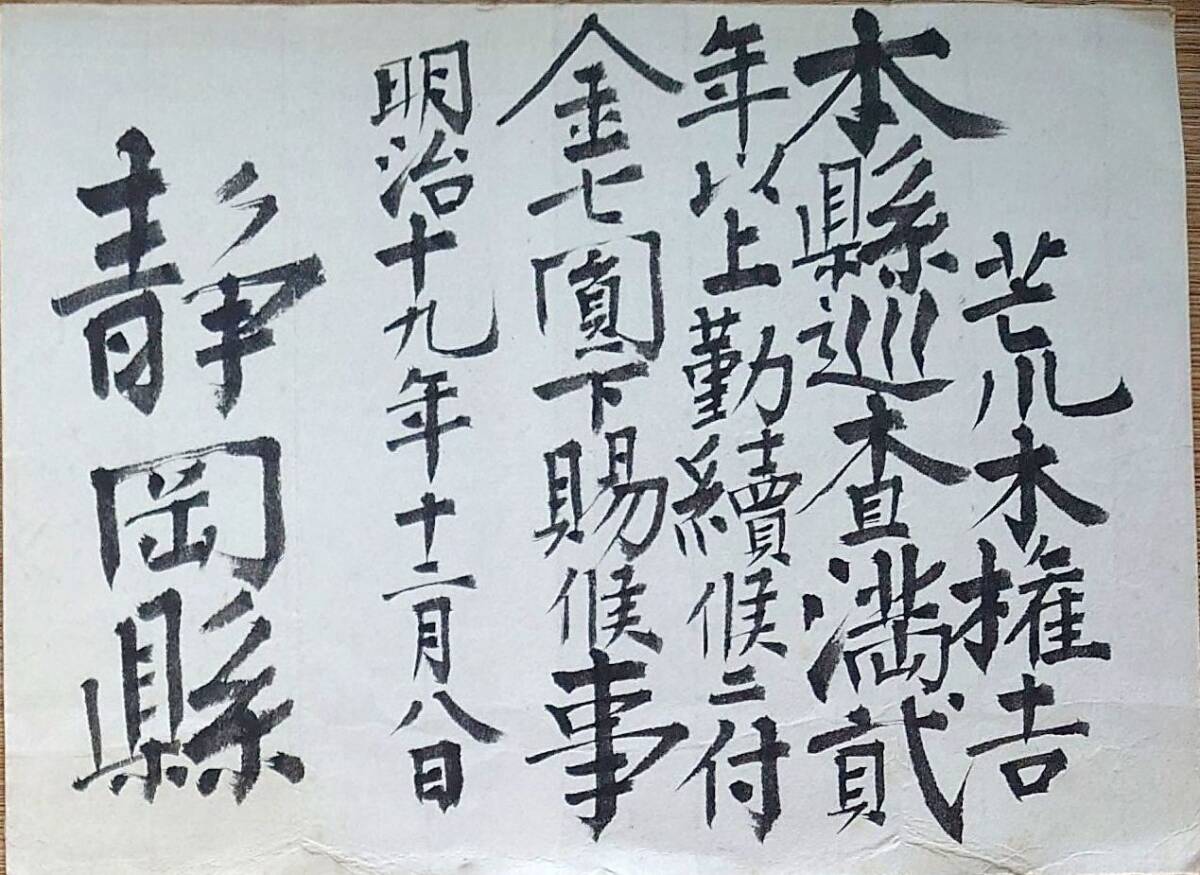 荒木権吉
本縣巡査満貳
年以上勤續候ニ付
金七圓下賜候事
明治十九年十二月八日
靜岡縣